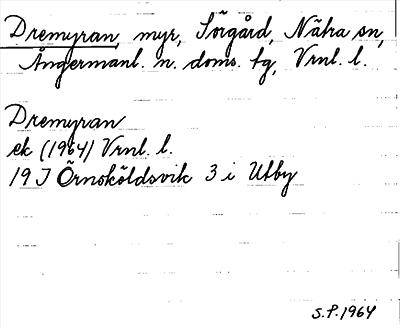 Dremyran, myr, Sörgård, Nätra sn,
Ångermanl. n. doms. tg, Vrnl. l.
Dremyran
ek (1964) Vrnl. l.
19 J Örnsköldsvik 3 i Utby
S.P. 1964